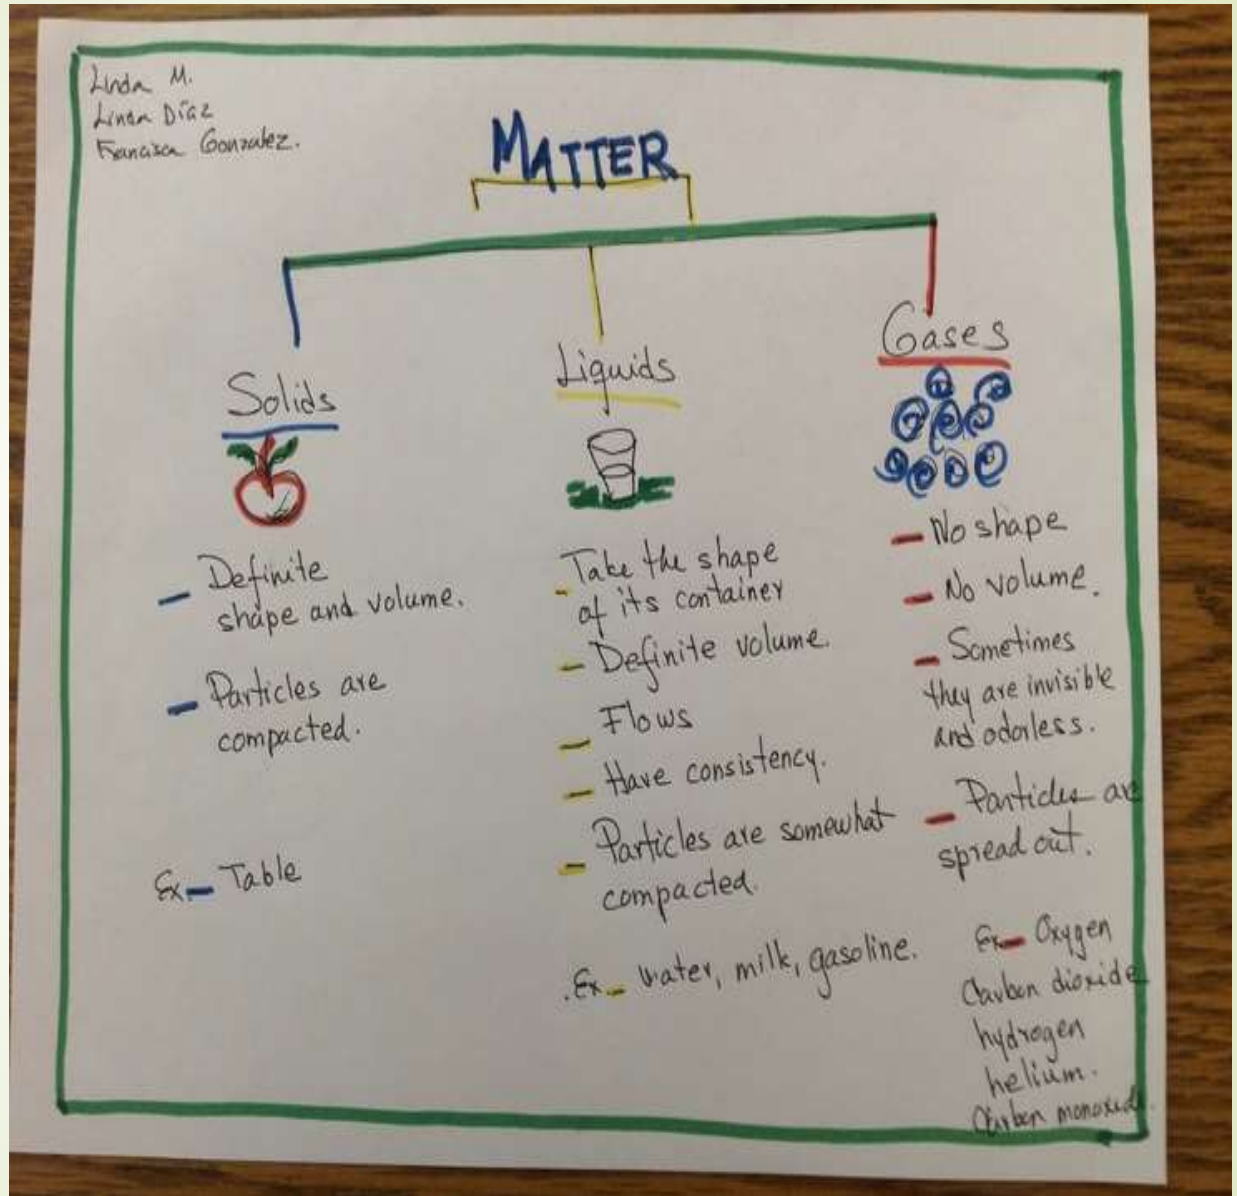 Linda M.
Linda Díaz
Francisca Gonzalez.
MATTER
Solids
Definite
shape and volume.
Particles are
compacted.
Ex Table
Liquids
Take the shape
of its container
Definite volume.
Flows
Have consistency.
Particles are somewhat
compacted.
.Ex water, milk, gasoline.
Gases
No shape
No volume.
Sometimes
they are invisible
and odorless.
Particles are
spread out.
Ex Oxygen
Carbon dioxide
hydrogen
helium.
Carbon monoxide.